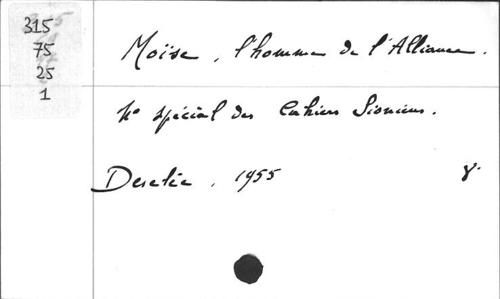 315
75
25
1
Moïse, l'homme de l'Alliance.
N° spécial des Cahiers Sioniens.
Desclée, 1955 8.